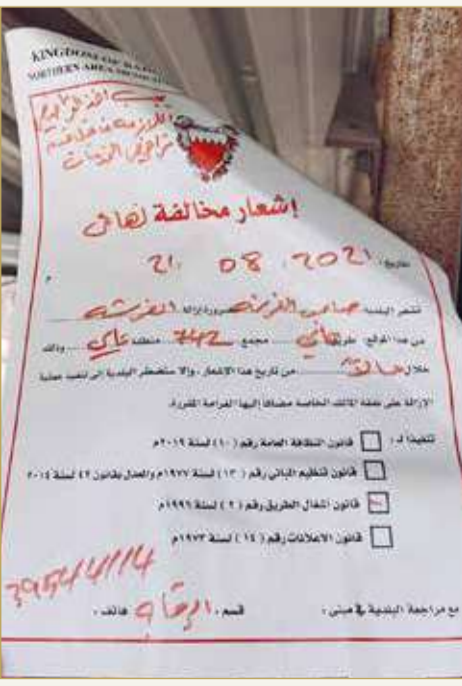 KINGDOM OF BA
NORTHERN AREA MUNICI
يجب اخذ
اللازمة
إشعار مخالفة نهائي
تاريخ: 21 08 2021
تشعر البلدية صاحب الفرشة بضرورة إزالة الفرشة
من هذا الموقع، طريق مجمع 742 منطقة عالي وذلك
خلال حالاً من تاريخ هذا الاشعار، وإلا ستضطر البلدية الى تنفيذ عملية
الإزالة على نفقة المالك الخاصة مضافا إليها الغرامة المقررة.
تنفيذا لـ :
قانون النظافة العامة رقم (١٠) لسنة ٢٠١٩م
قانون تنظيم المباني رقم (١٣) لسنة ١٩٧٧م والمعدل بقانون ٤٢ لسنة ٢٠١٤
قانون أشغال الطريق رقم (٢) لسنة ١٩٩٦م
قانون الاعلانات رقم (١٤) لسنة ١٩٧٣م
39544114
مع مراجعة البلدية في مبنى : قسم : الرقابة هاتف :